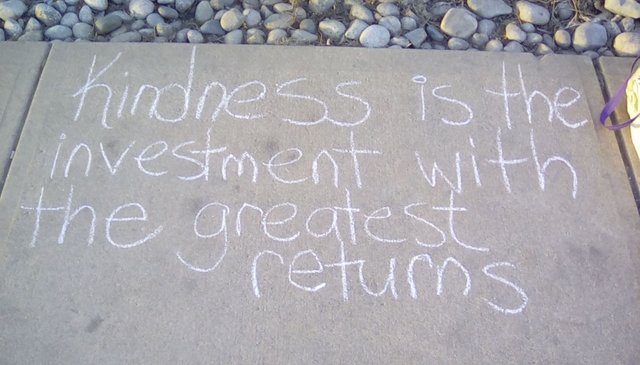 Kindness is the
investment with
the greatest
returns